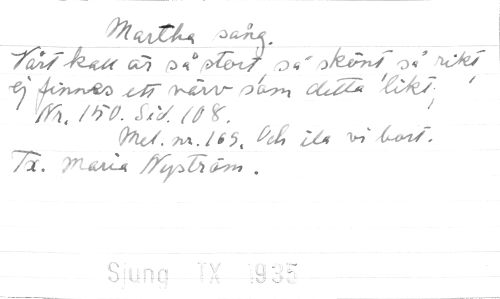 Martha sång.
Vårt kall är så stort, så skönt, så rikt,
ej finnes ett värv som detta likt,
Nr. 150. Sid. 108.
Mel. nr. 169. Och ila vi bort.
Tx. Maria Nyström.
Sjung TX 1935